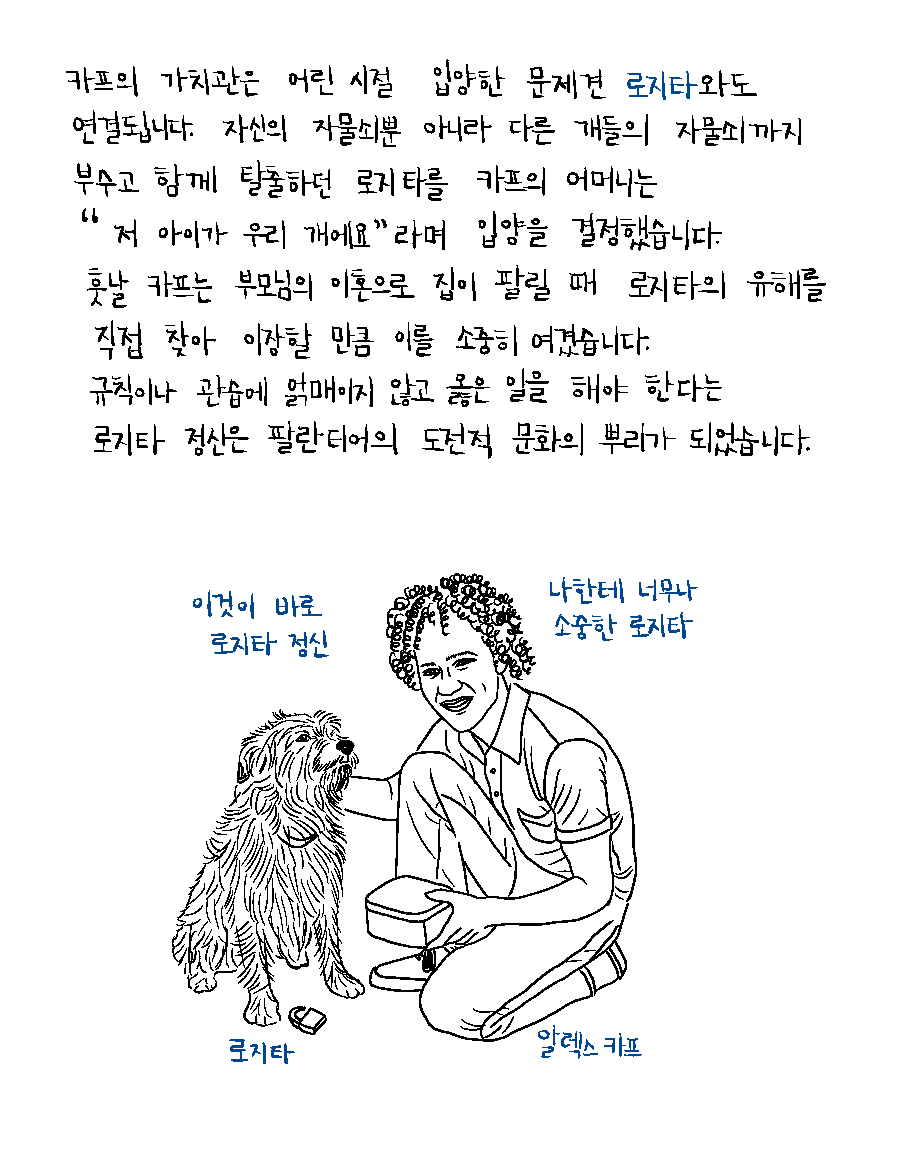 카프의 가치관은 어린 시절 입양한 문제견 로지타와도
연결됩니다. 자신의 자물쇠뿐 아니라 다른 개들의 자물쇠까지
부수고 함께 탈출하던 로지타를 카프의 어머니는
“저 아이가 우리 개예요”라며 입양을 결정했습니다.
훗날 카프는 부모님의 이혼으로 집이 팔릴 때 로지타의 유해를
직접 찾아 이장할 만큼 이를 소중히 여겼습니다.
규칙이나 관습에 얽매이지 않고 옳은 일을 해야 한다는
로지타 정신은 팔란티어의 도전적 문화의 뿌리가 되었습니다.
이것이 바로
로지타 정신
나한테 너무나
소중한 로지타
로지타
알렉스 카프